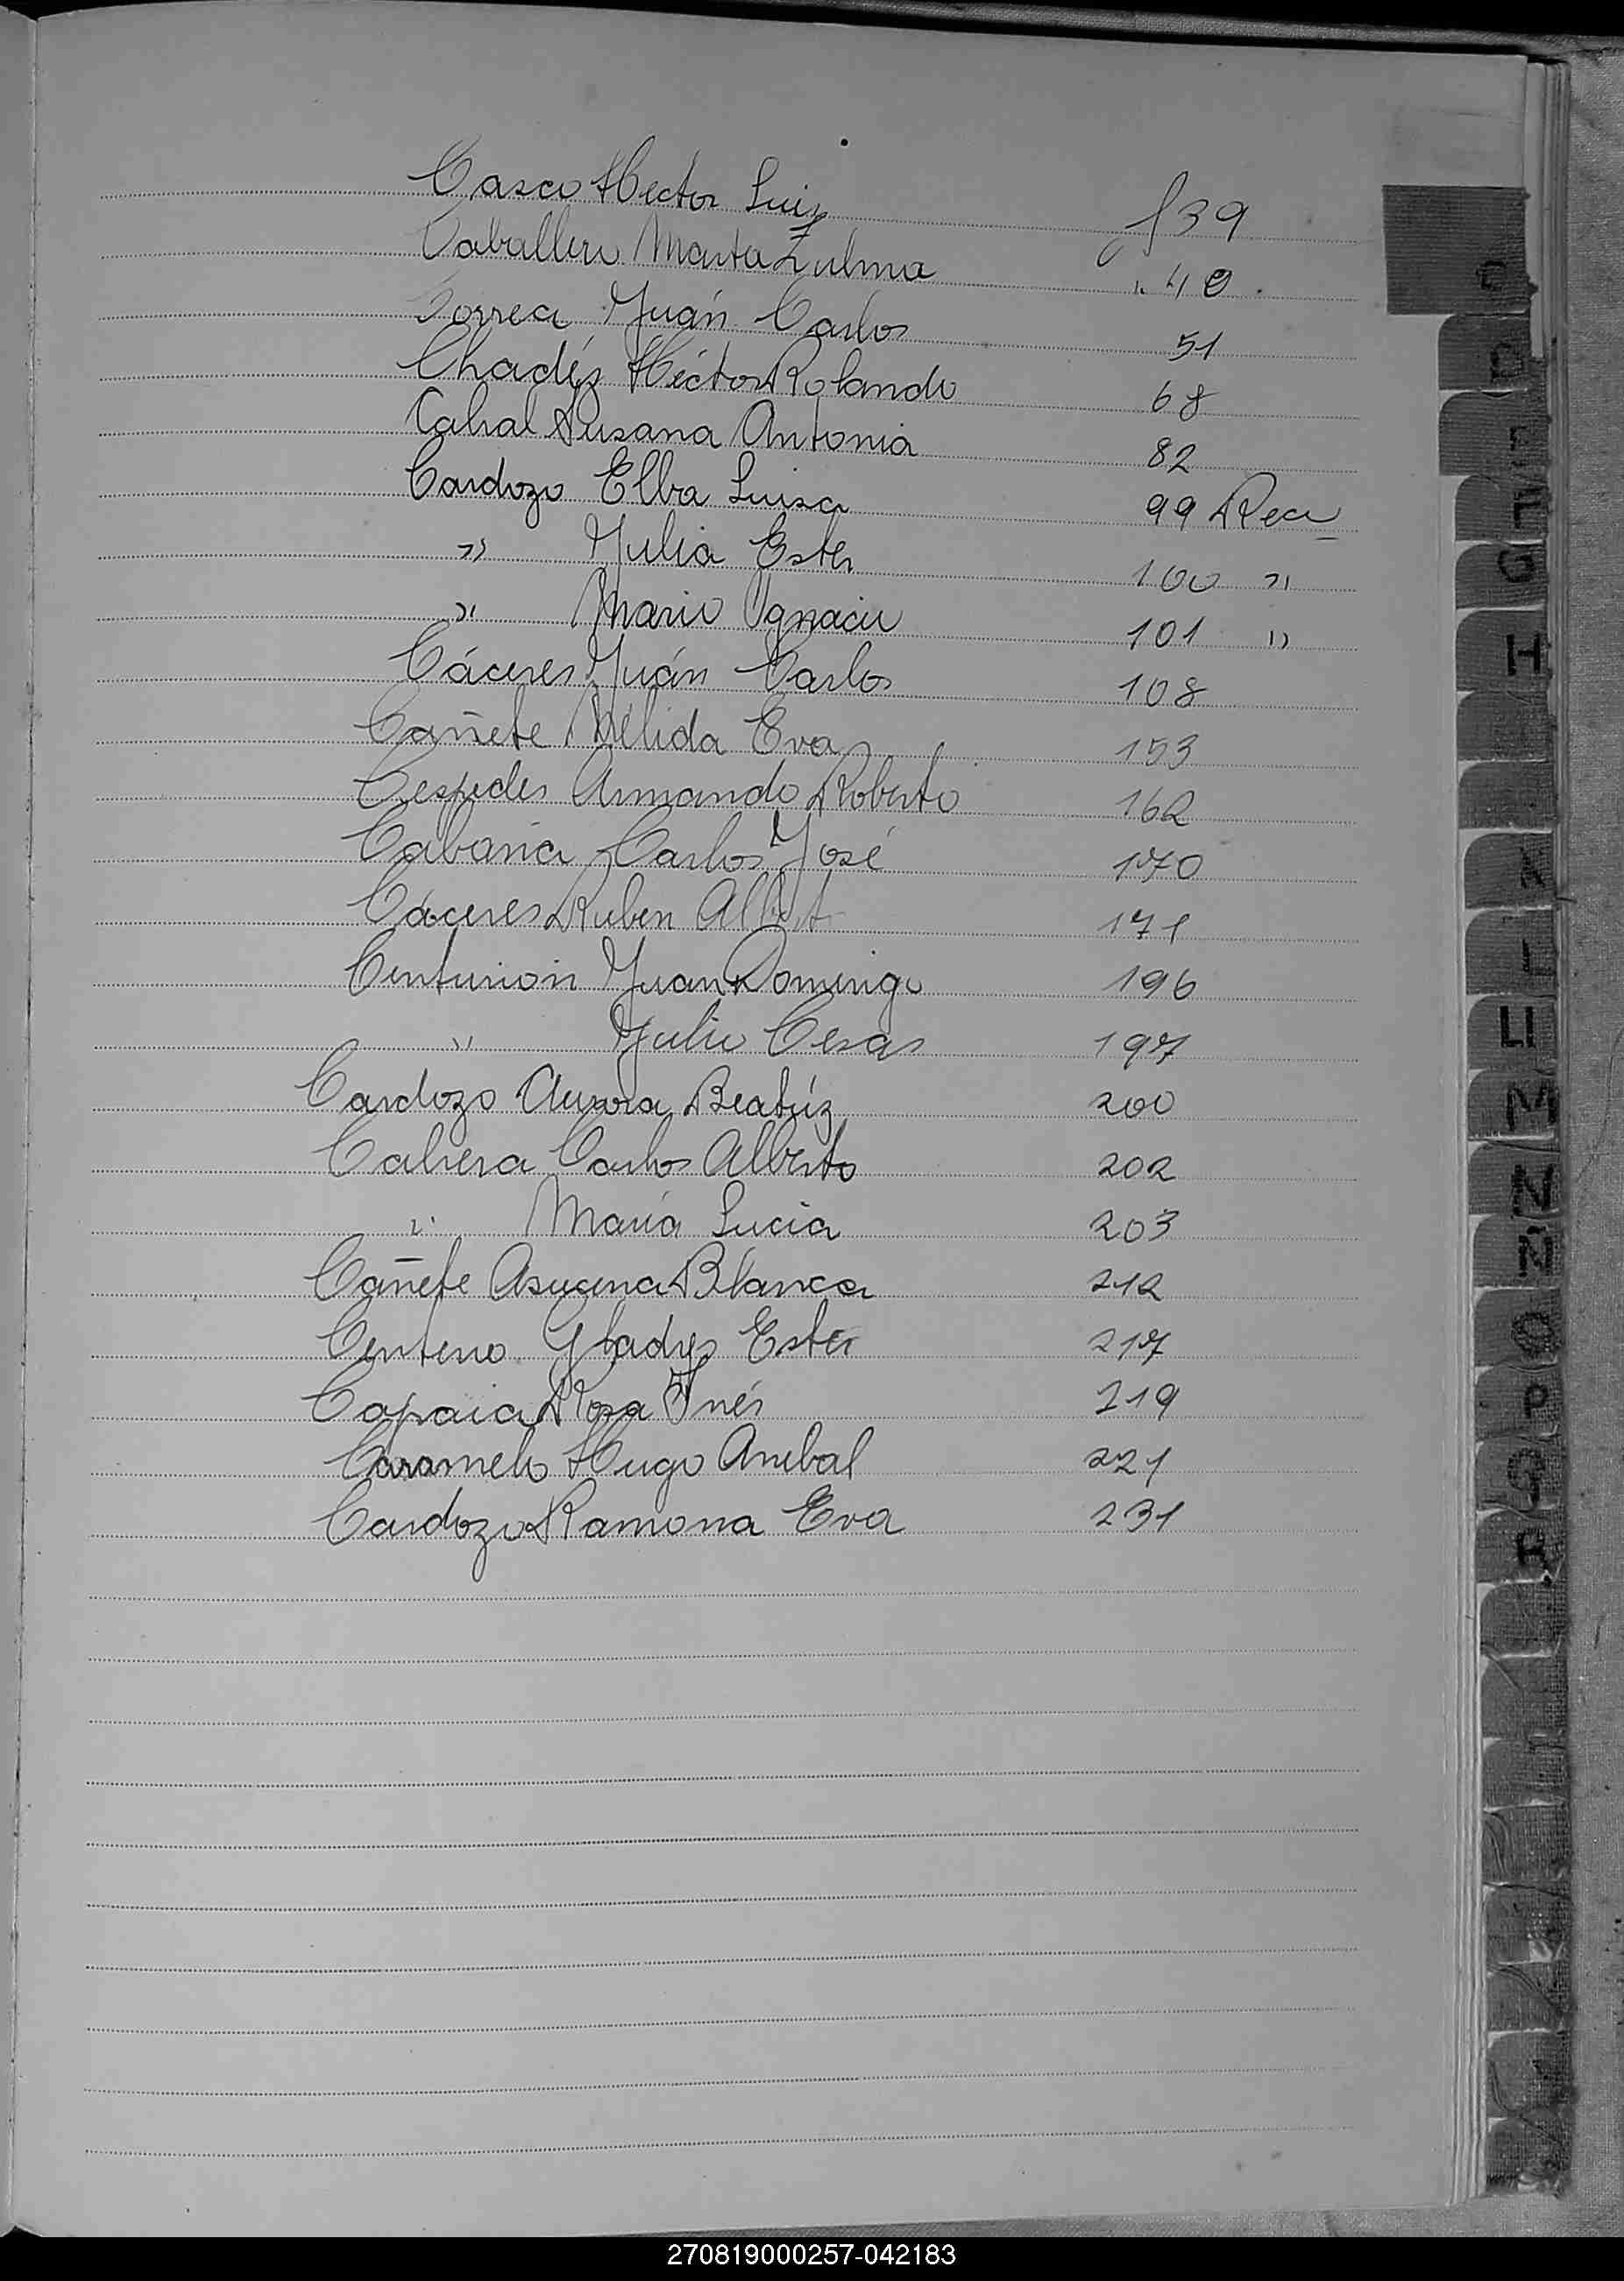 Casco Hector Luis f 39
Caballero Marta Zulma " 40
Correa Juán Carlos 51
Chadés Héctor Rolando 68
Cabral Susana Antonia 82
Cardozo Elba Luisa 99 Rec
" Julia Ester 100 "
" Mario Ygnacio 101 "
Cáceres Juán Carlos 108
Cañete Nélida Eva 153
Cespedes Armando Roberto 162
Cabaña Carlos José 170
Cáceres Ruben Albert 171
Centurion Juan Domingo 196
" Julio Cesar 197
Cardozo Aurora Beatríz 200
Cabrera Carlos Alberto 202
" María Lucia 203
Cañete Asucena Blanca 212
Centeno Gladys Ester 217
Rosa Ynés 219
Caramelo Hugo Anibal 221
Cardozo Ramona Eva 231
D
G
H
M
N
O
P
Q
R
270819000257-042183